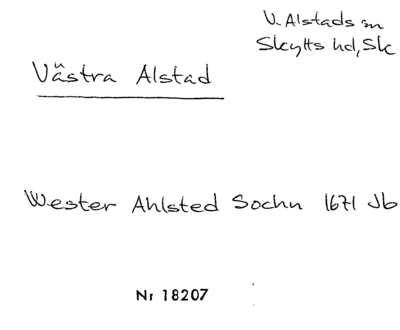 V. Alstads sn
Skytts hd, Sk
Västra Alstad
Wester Ahlsted Sochn 1671 Jb
Nr 18207